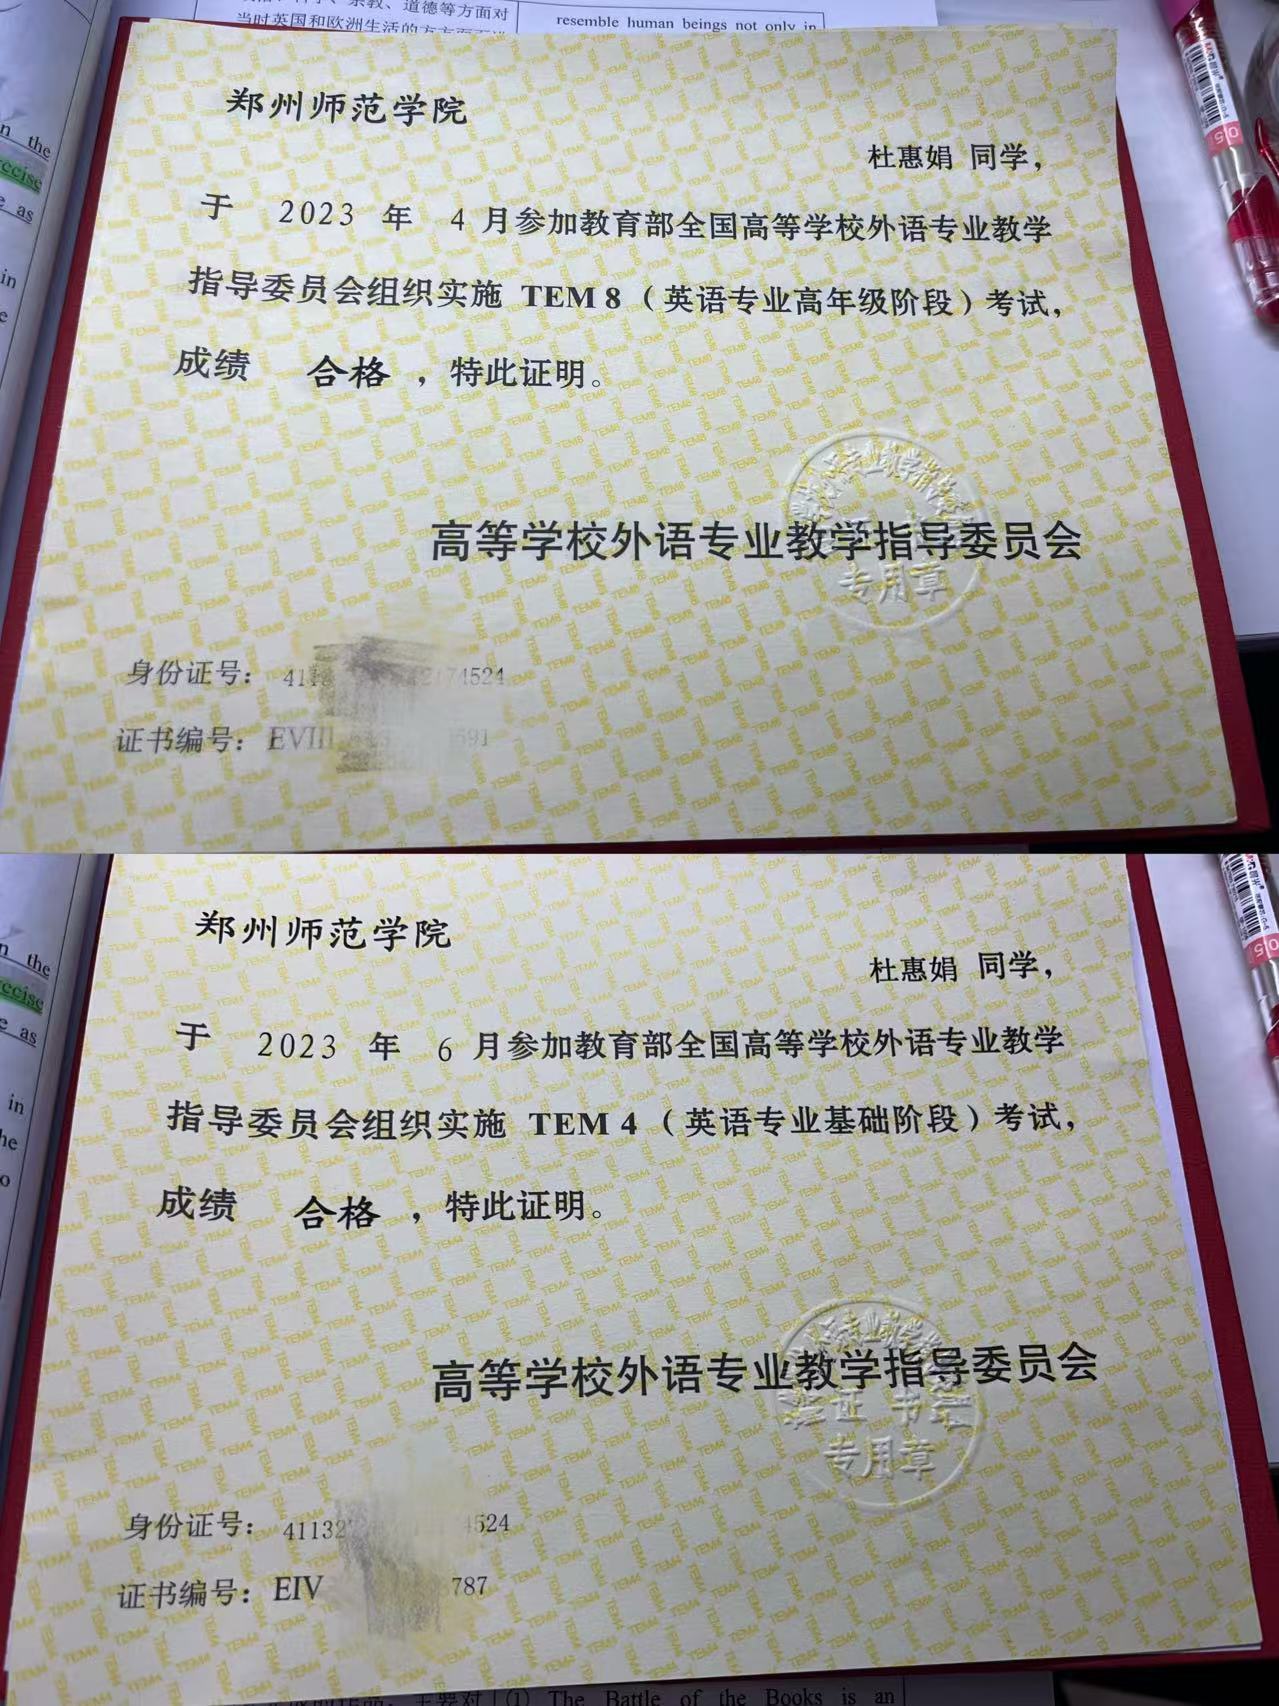 、宗教、道德等方面对
当时英国和欧洲生活的方方面面
resemble human beings not only in
n the
recise
e as
in
e
郑州师范学院
杜惠娟 同学，
于 2023 年 4 月参加教育部全国高等学校外语专业教学
指导委员会组织实施 TEM 8（英语专业高年级阶段）考试，
成绩 合格 ，特此证明。
高等学校外语专业教学指导委员会
专用章
身份证号： 411 2174524
证书编号： EVIII 591
n the
recise
e as
in
he
o
郑州师范学院
杜惠娟 同学，
于 2023 年 6 月参加教育部全国高等学校外语专业教学
指导委员会组织实施 TEM 4（英语专业基础阶段）考试，
成绩 合格 ，特此证明。
高等学校外语专业教学指导委员会
证书
专用章
身份证号： 41132 4524
证书编号： EIV 787
主要对
① The Battle of the Books is an